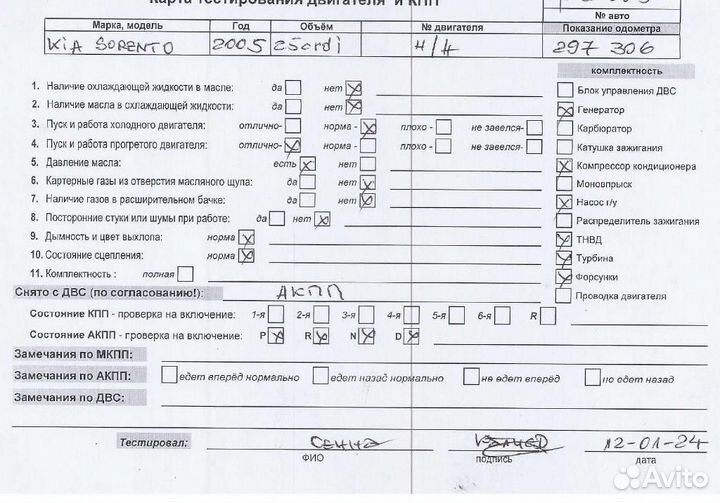 Карта тестирования двигателя и КПП
№ авто
Марка, модель Год Объём № двигателя Показание одометра
KIA SORENTO 2005 25crdi н/н 297 306
комплектность
1. Наличие охлаждающей жидкости в масле: да нет Блок управления ДВС
2. Наличие масла в охлаждающей жидкости: да нет Генератор
3. Пуск и работа холодного двигателя: отлично- норма - плохо - не завелся- Карбюратор
4. Пуск и работа прогретого двигателя: отлично- норма - плохо - не завелся- Катушка зажигания
5. Давление масла: есть нет Компрессор кондиционера
6. Картерные газы из отверстия масляного щупа: да нет Моновпрыск
7. Наличие газов в расширительном бачке: да нет Насос г/у
8. Посторонние стуки или шумы при работе: да нет Распределитель зажигания
9. Дымность и цвет выхлопа: норма ТНВД
10. Состояние сцепления: норма Турбина
11. Комплектность : полная Форсунки
Снято с ДВС (по согласованию!): АКПП Проводка двигателя
Состояние КПП - проверка на включение: 1-я 2-я 3-я 4-я 5-я 6-я R
Состояние АКПП - проверка на включение: P R N D
Замечания по МКПП:
Замечания по АКПП: едет вперёд нормально едет назад нормально не едет вперёд не едет назад
Замечания по ДВС:
Тестировал: 12-01-24
ФИО подпись дата
Avito